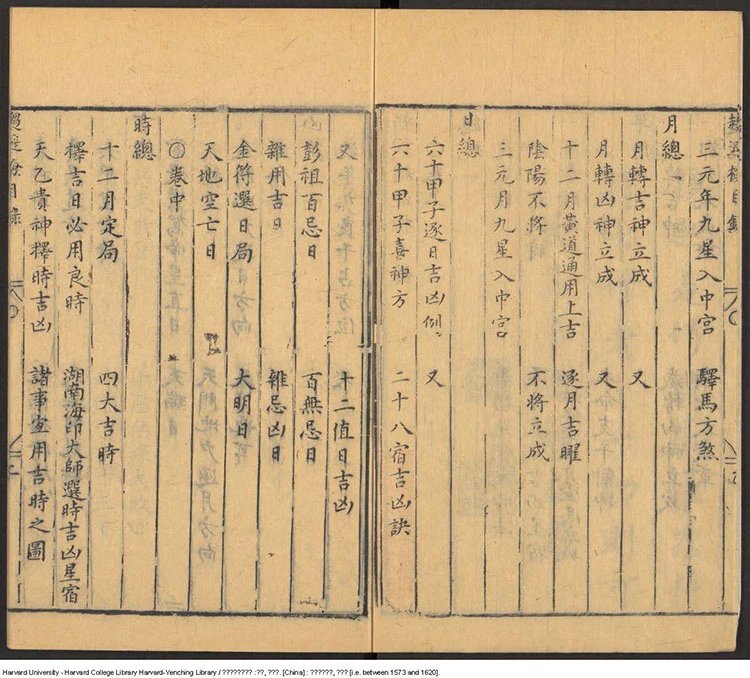 三元年九星入中宮　驛馬方煞
月總
月轉吉神立成　又
月轉凶神立成　又
十二月黃道通用上吉　逐月吉曜
陰陽不將　不將立成
三元月九星入中宮
日總
六十甲子逐日吉凶例　又
六十甲子喜神方　二十八宿吉凶訣
又　十二值日吉凶
彭祖百忌日　百無忌日
雜用吉日　雜忌凶日
金符選日局　大明日
天地空亡日
〇卷中
時總
十二月定局　四大吉時
擇吉日必用良時　湖南海印大師選時吉凶星宿
天乙貴神擇時吉凶　諸事宜用吉時之圖
Harvard University - Harvard College Library Harvard-Yenching Library / ???????? :??, ???. [China] : ??????, ??? [i.e. between 1573 and 1620].